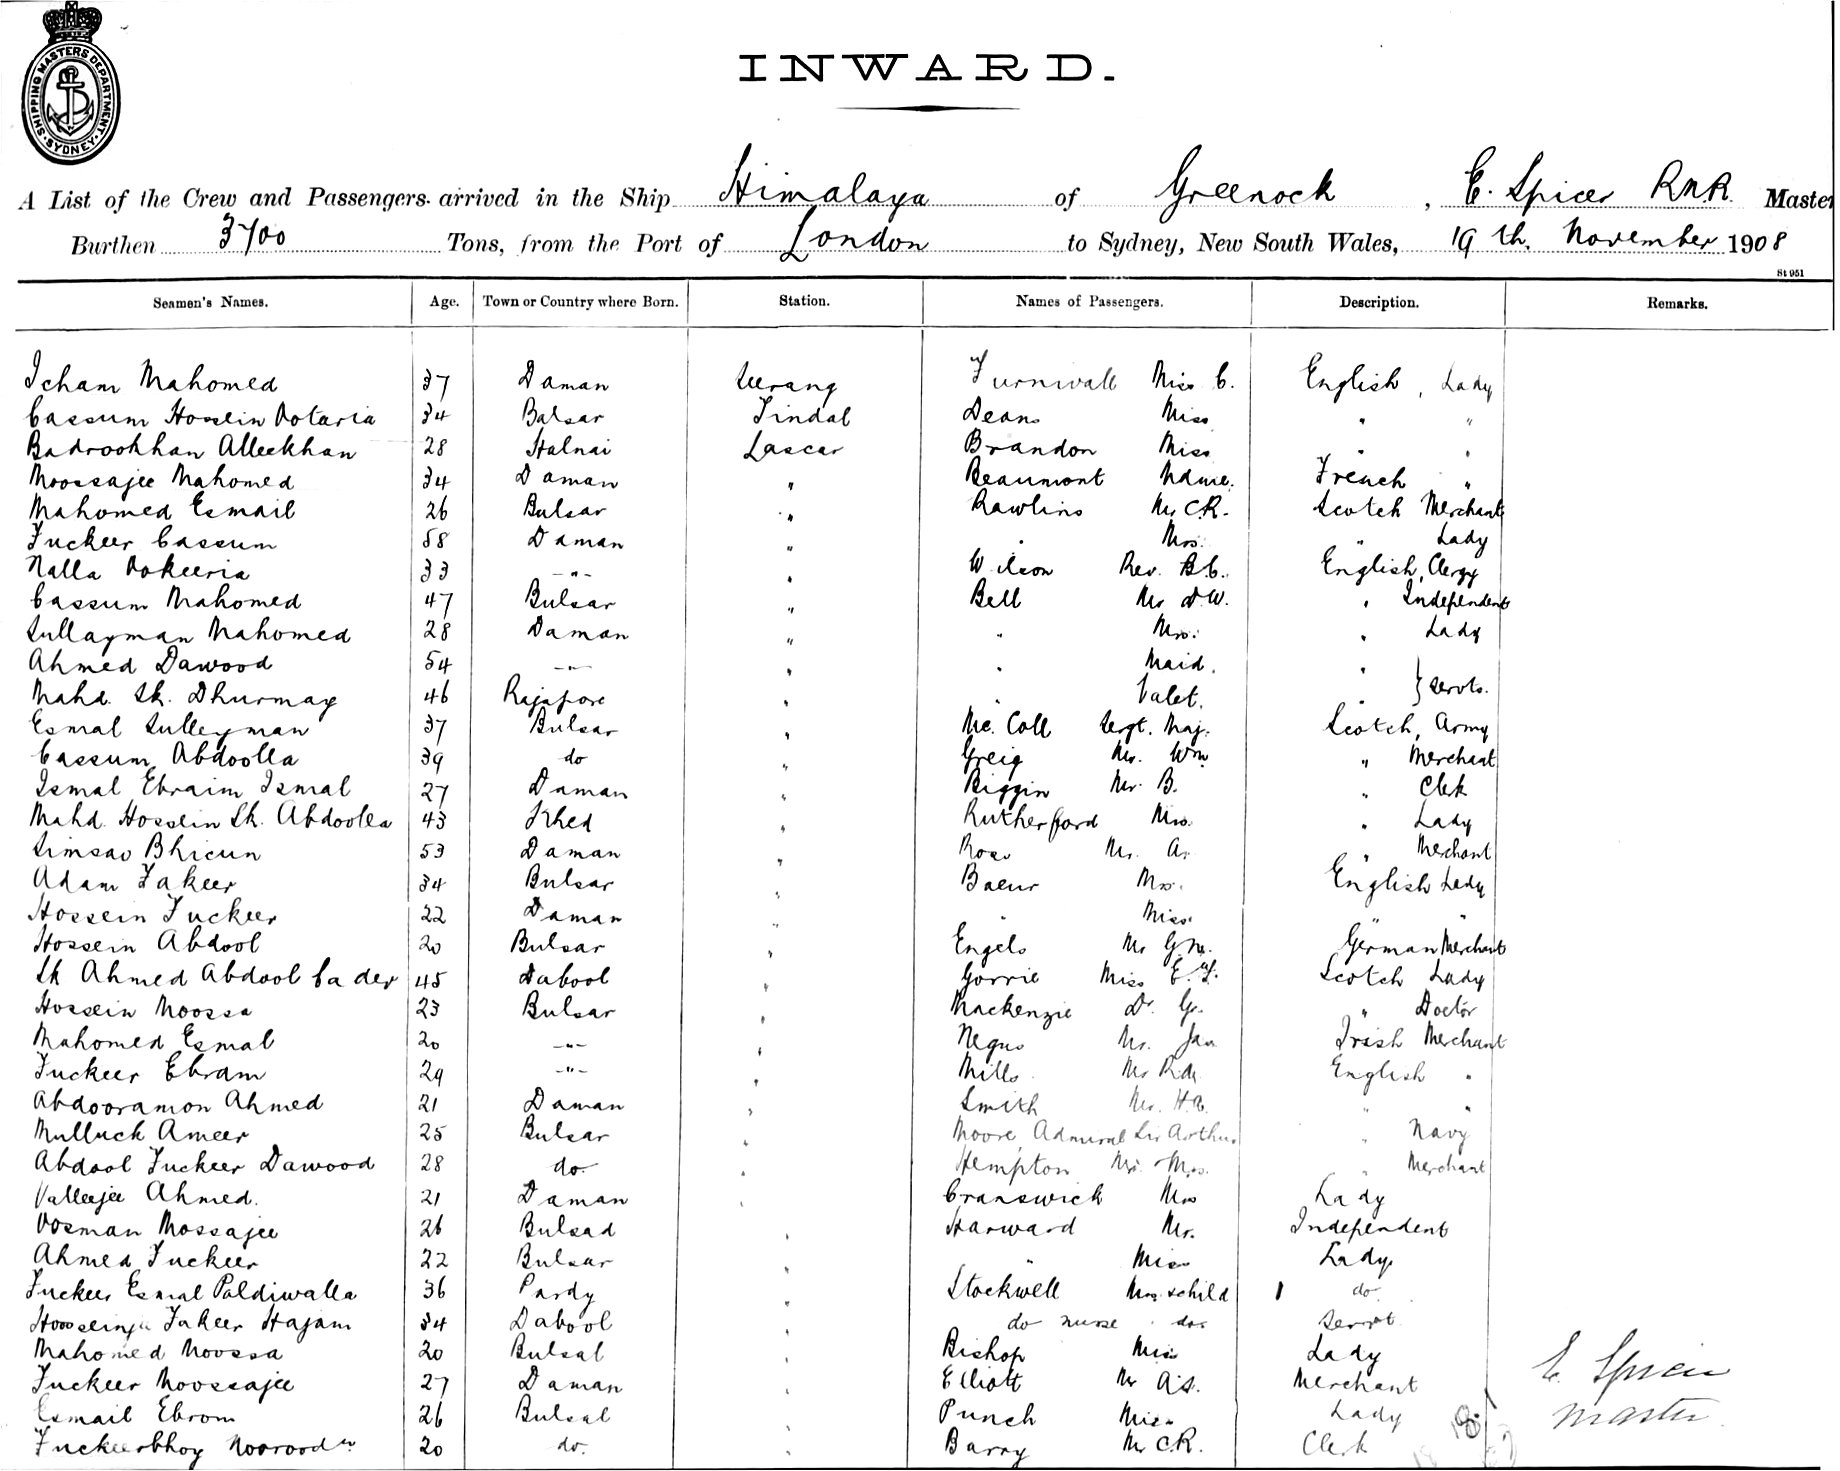 SHIPPING MASTERS DEPARTMENT. SYDNEY
INWARD.
A List of the Crew and Passengers arrived in the Ship Himalaya of Greenock, E. Spicer R.N.R. Master
Burthen 3700 Tons, from the Port of London to Sydney, New South Wales, 19th. November 1908
St 951
Seamen's Names. Age. Town or Country where Born. Station. Names of Passengers. Description. Remarks.
Icham Mahomed 37 Daman Serang Furnivall Miss C. English, Lady
Cassum Hossein Votaria 34 Balsar Tindal Deans Miss " "
Badrookhan Alleekhan 28 Halnai Lascar Brandon Miss " "
Moossajee Mahomed 34 Daman " Beaumont Mdme. French "
Mahomed Esmail 26 Bulsar " Rawlins Mr C.R. Scotch Merchant
Fuckeer Cassum 58 Daman " " Mrs. " Lady
Nalla Vokeeria 33 -"- " Wilson Rev. B.C. English, Clergy
Cassum Mahomed 47 Bulsar " Bell Mr D.W. " Independent
Sullayman Mahomed 28 Daman " " Mrs. " Lady
Ahmed Dawood 54 -"- " " Maid. "
Mahd. Sk. Dhurmay 46 Rajapore " " Valet. " } Servts.
Esmal Sulleyman 37 Bulsar " Mc. Coll Sergt. Maj. Scotch, Army
Cassum Abdoolla 39 do " Greig Mr. Wm " Merchant
Ismal Ebraim Ismal 27 Daman " Biggin Mr. B. " Clerk
Mahd. Hossein Sk. Abdoolla 43 Khed " Rutherfford Mrs. " Lady
Simsao Bhicun 53 Daman " Ross Mr. A. " Merchant
Adam Fakeer 34 Bulsar " Baeur Mrs. English Lady
Hossein Fuckeer 22 Daman " " Miss " "
Hossein Abdool 20 Bulsar " Engels Mr German Merchant
Sk Ahmed Abdool Cader 45 Dabool " Gorrie Miss E.F. Scotch Lady
Hossein Moossa 23 Bulsar " Mackenzie Dr. G. " Doctor
Mahomed Esmal 20 -"- " Negus Mr. Jas Irish Merchant
Fuckeer Ebram 29 -"- " Mills Mr English "
Abdooramon Ahmed 21 Daman " Smith Mr. " "
Mulluck Ameer 25 Bulsar " Moore Admiral Sir Arthur " Navy
Abdool Fuckeer Dawood 28 do. " Hempton Mr. Mrs. " Merchant
Valleejee Ahmed. 21 Daman " Cranswick Mrs Lady
Vosman Mossajee 26 Bulsad " Harward Mr. Independent
Ahmed Fuckeer 22 Bulsar " " Miss Lady
Fuckeer Esmal Paldiwalla 36 Pardy " Stockwell Mrs & child 1 do.
Fakeer Hajam 34 Dabool " do nurse do. Servt.
Mahomed Moossa 20 Bulsal " Bishop Miss Lady
Fuckeer Moossajee 27 Daman " Elliott Mr A.S. Merchant
Esmail Ebrom 26 Bulsal " Punch Miss Lady
Fuckeerbhoy 20 do. " Barry Mr C.R. Clerk
E. Spicer
Master